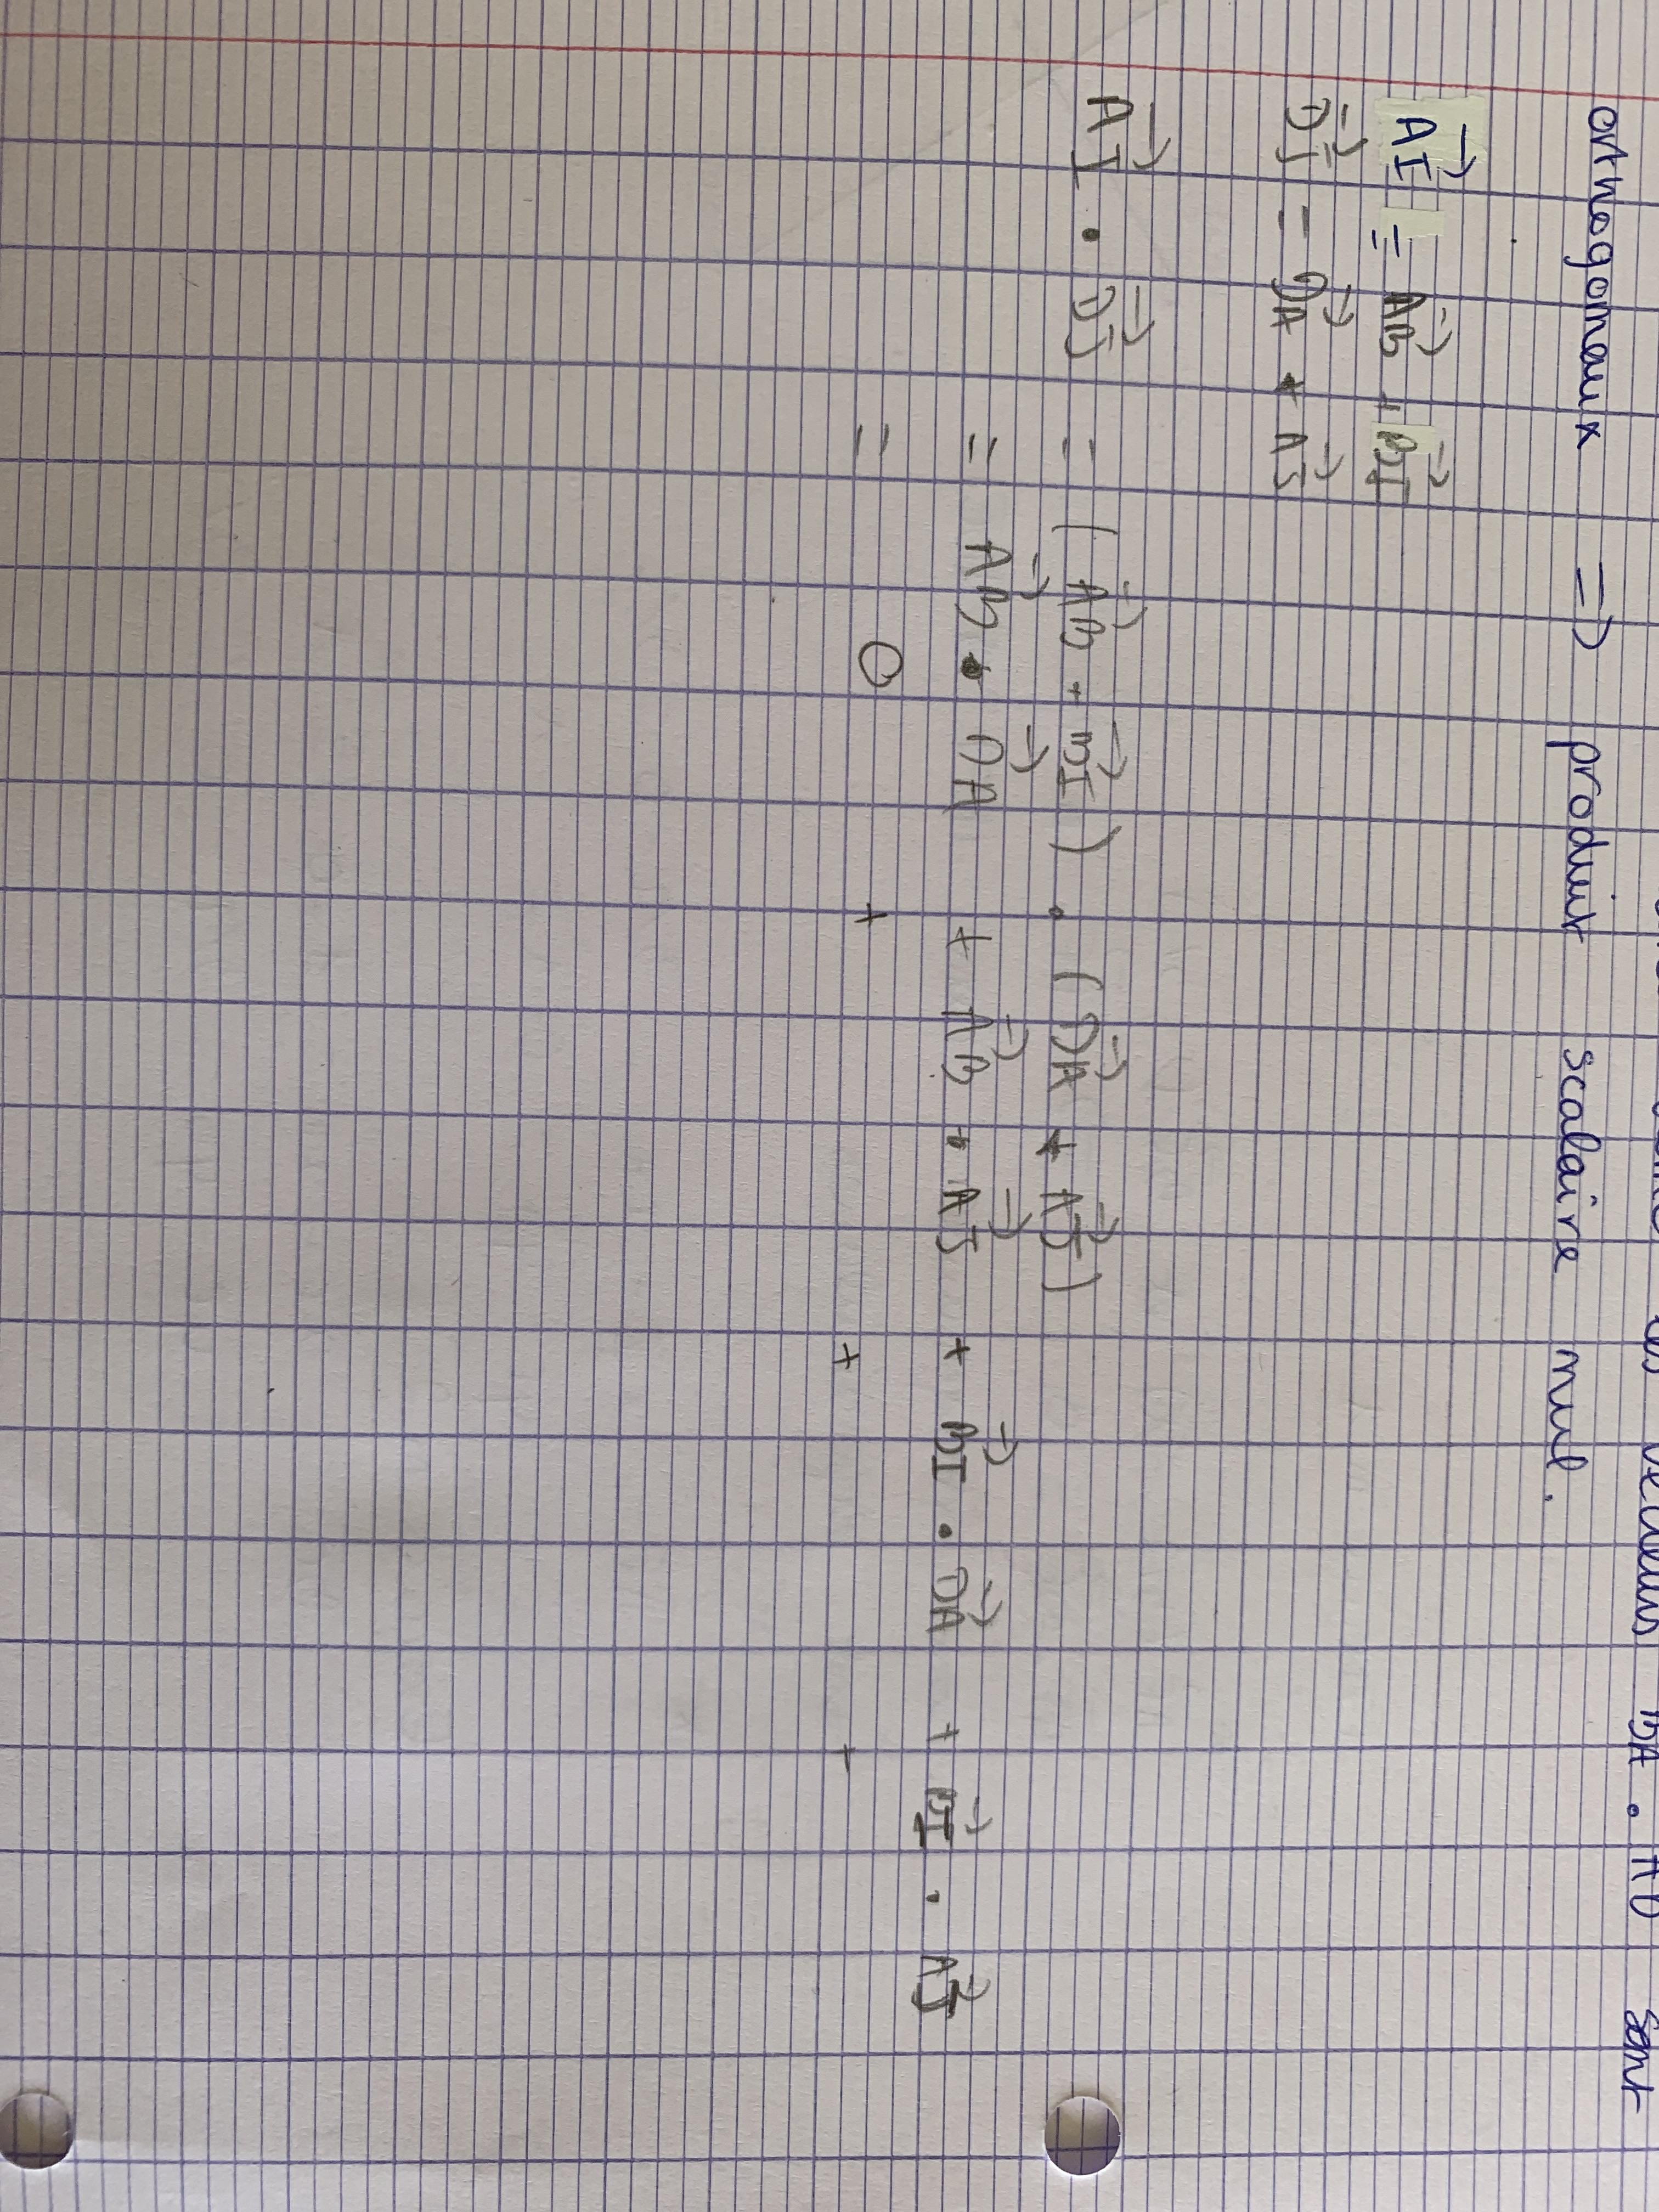 les vecteurs BA • AD sont
orthogonaux => produit scalaire nul.
AI = AB + BI
DJ = DA + AJ
AI • DJ = ( AB + BI ) • ( DA + AJ )
= AB • DA + AB • AJ + BI • DA + BI • AJ
= 0 + + +